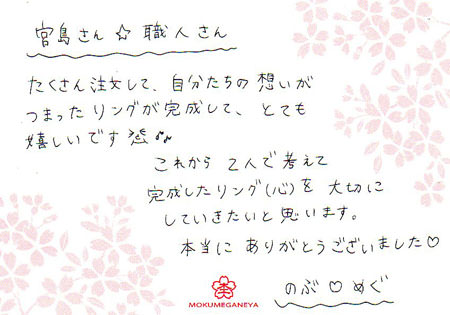 宮島さん☆職人さん
たくさん注文して、自分たちの想いが
つまったリングが完成して、とても
嬉しいです♪
これから2人で考えて
完成したリング(心)を大切に
していきたいと思います。
本当にありがとうございました♡
のぶ♡めぐ
MOKUMEGANEYA